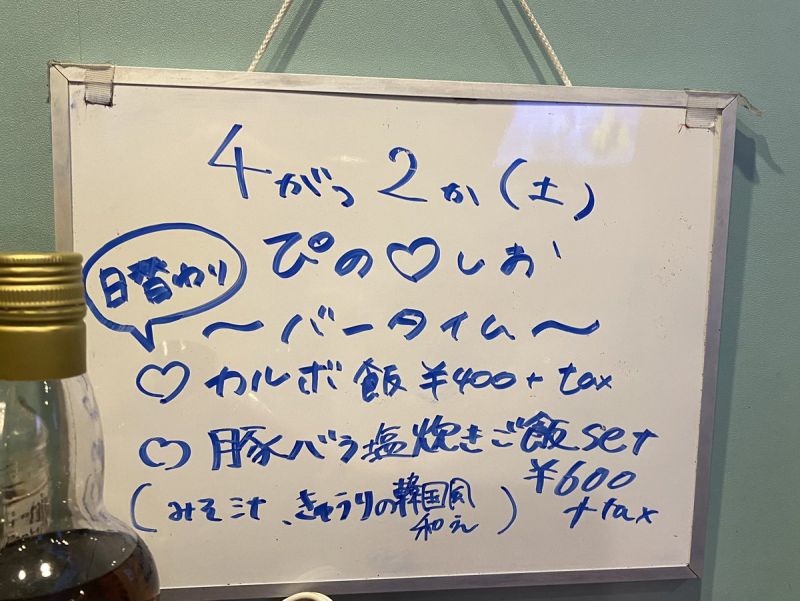 4がつ2か(土)
ぴの♡しお
日替わり
〜バータイム〜
♡カルボ飯 ¥400+tax
♡豚バラ塩炊きご飯set
¥600
+tax
(みそ汁、きゅうりの韓国風
和え)